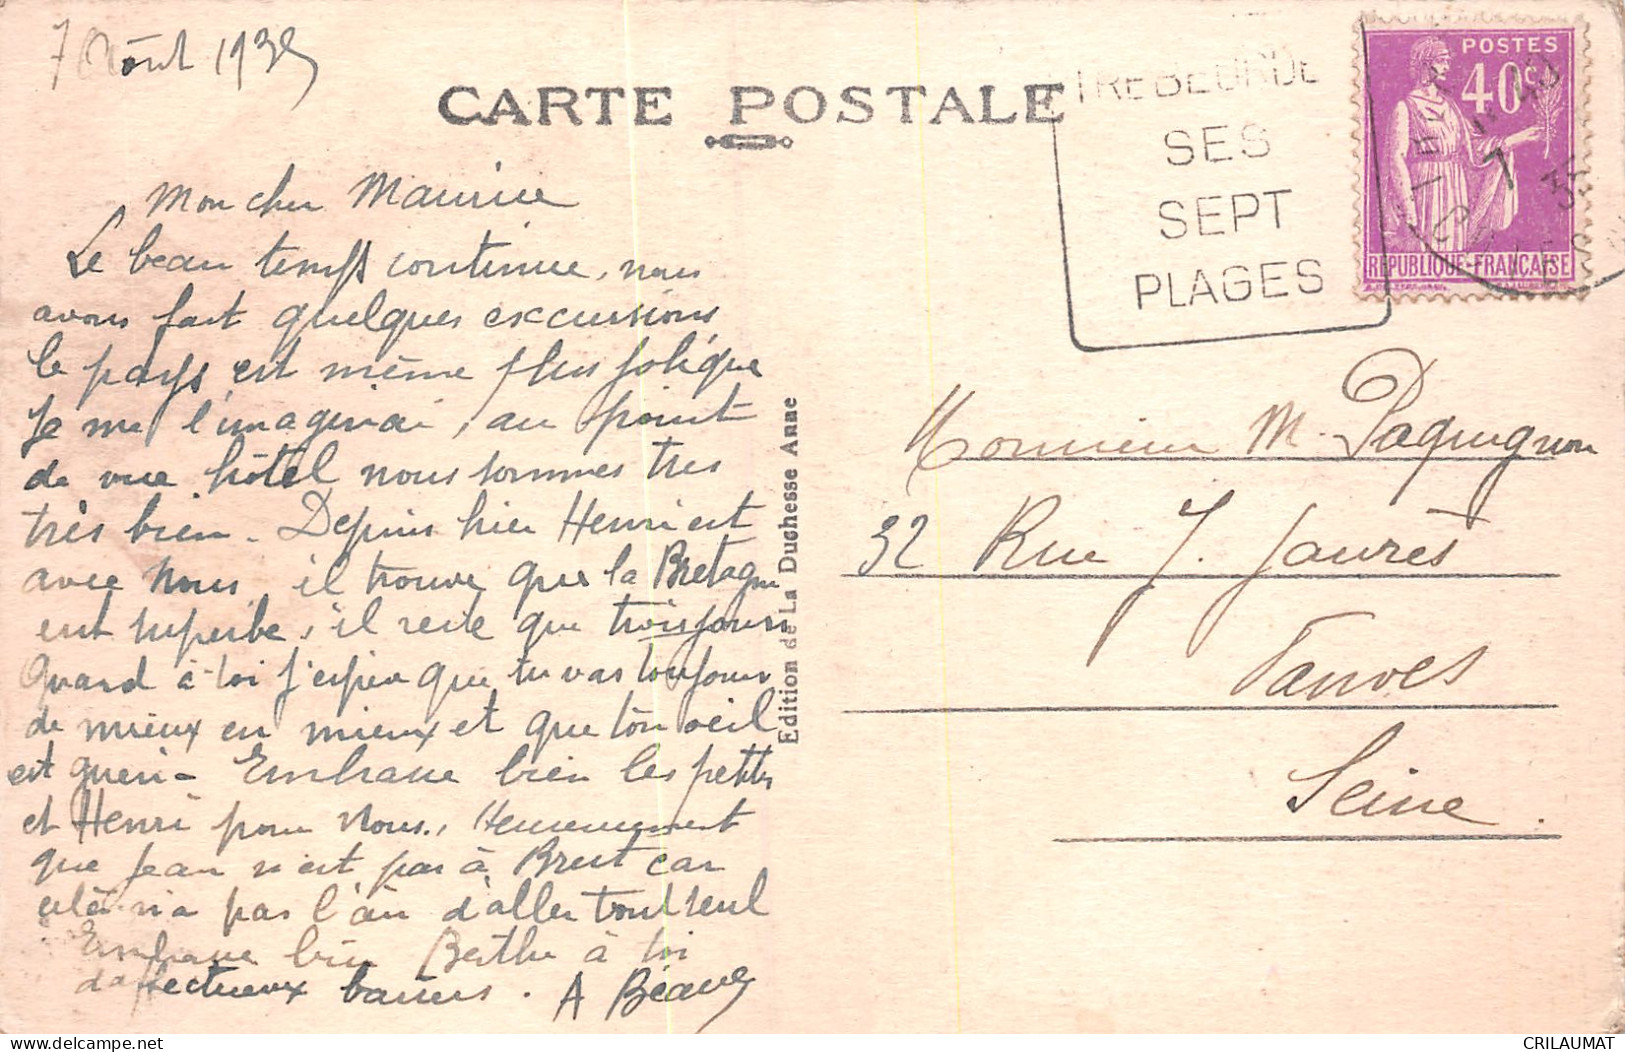 7 Août 1935
CARTE POSTALE
TREBEURDE
SES
SEPT
PLAGES
POSTES
40c
REPUBLIQUE-FRANÇAISE
7
35
Mon cher Maurice
Le beau temps continue, nous
avons fait quelques excursions
le pays est même plus joli que
Je me l'imaginai, au point
de vue hôtel nous sommes tres
très bien. Depuis hier Henri est
avec nous, il trouve que la Bretagne
est superbe, il reste que trois jours
Quand à toi j'espère que tu vas toujours
de mieux en mieux et que ton oeil
est gueri - Embrasse bien les petites
et Henri pour nous, Heureusement
que Jean n'est pas à Brest car
celà n'a pas l'air d'aller tout seul
Embrasse bien Berthe à toi
d'affectueux baisers. A
Edition de La Duchesse Anne
Monsieur M. Paquignon
32 Rue J. Jaurès
Vanves
Seine.
CRILAUMAT